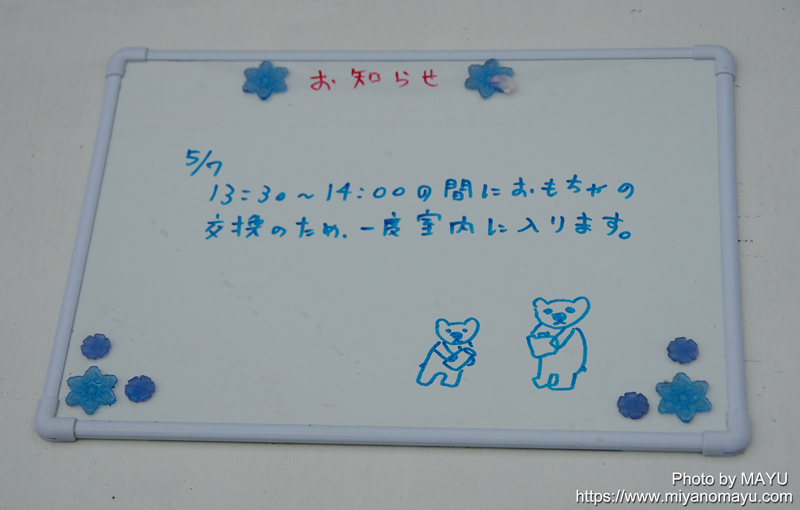 お知らせ
5/7
13:30～14:00の間におもちゃの
交換のため、一度室内に入ります。
Photo by MAYU
https://www.miyanomayu.com